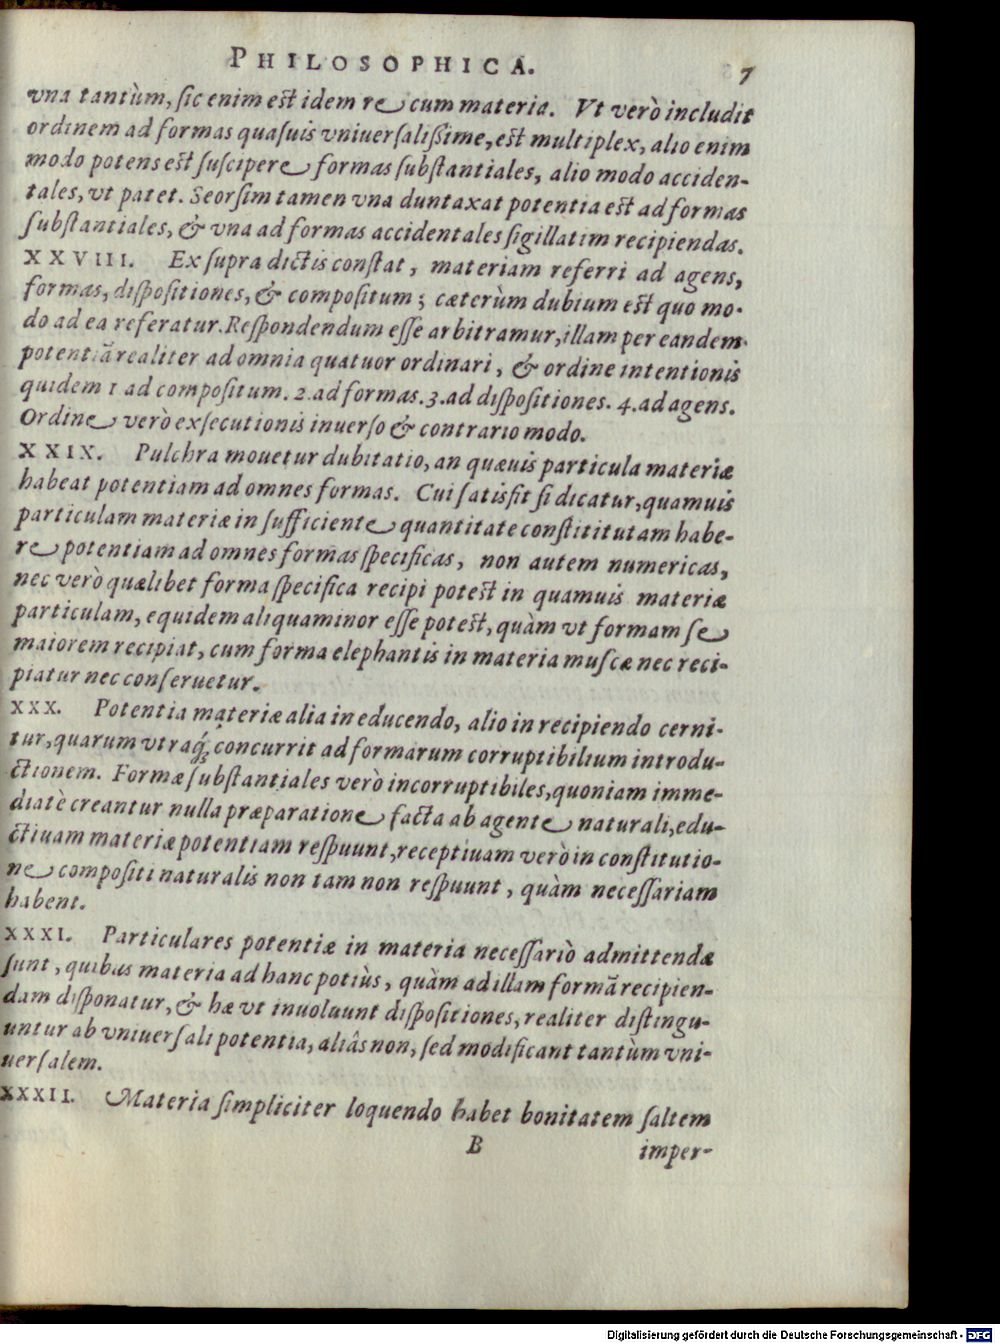 PHILOSOPHICA. 7
vna tantùm, ſic enim est idem re cum materia. Vt verò includit
ordinem ad formas quaſuis vniuerſaliſsime, est multiplex, alio enim
modo potens est ſuſcipere formas ſubſtantiales, alio modo acciden-
tales, vt patet. Seorſim tamen vna duntaxat potentia est ad formas
ſubſtantiales, & vna ad formas accidentales ſigillatim recipiendas.
XXVIII. Ex ſupra dictis conſtat, materiam referri ad agens,
formas, diſpoſitiones, & compoſitum; cæterùm dubium est quo mo-
do ad ea referatur. Reſpondendum eſſe arbitramur, illam per eandem
potentiã realiter ad omnia quatuor ordinari, & ordine intentionis
quidem 1 ad compoſitum. 2. ad formas. 3. ad diſpoſitiones. 4. ad agens.
Ordine verò exſecutionis inuerſo & contrario modo.
XXIX. Pulchra mouetur dubitatio, an quæuis particula materiæ
habeat potentiam ad omnes formas. Cui ſatisfit ſi dicatur, quamuis
particulam materiæ in ſufficiente quantitate conſtititutam habe-
re potentiam ad omnes formas ſpecificas, non autem numericas,
nec verò quælibet forma ſpecifica recipi potest in quamuis materiæ
particulam, equidem aliqua minor eſſe potest, quàm vt formam ſe
maiorem recipiat, cum forma elephantis in materia muſcæ nec reci-
piatur nec conſeruetur.
XXX. Potentia materiæ alia in educendo, alio in recipiendo cerni-
tur, quarum vtraq́; concurrit ad formarum corruptibilium introdu-
ctionem. Formæ ſubſtantiales verò incorruptibiles, quoniam imme-
diatè creantur nulla præparatione facta ab agente naturali, edu-
ctiuam materiæ potentiam reſpuunt, receptiuam verò in conſtitutio-
ne compoſiti naturalis non tam non reſpuunt, quàm neceſſariam
habent.
XXXI. Particulares potentiæ in materia neceſſariò admittendæ
ſunt, quibus materia ad hanc potiùs, quàm ad illam formã recipien-
dam diſponatur, & hæ vt inuoluunt diſpoſitiones, realiter diſtingu-
untur ab vniuerſali potentia, aliâs non, ſed modificant tantùm vni-
uerſalem.
XXXII. Materia ſimpliciter loquendo habet bonitatem ſaltem
B imper-
Digitalisierung gefördert durch die Deutsche Forschungsgemeinschaft - DFG